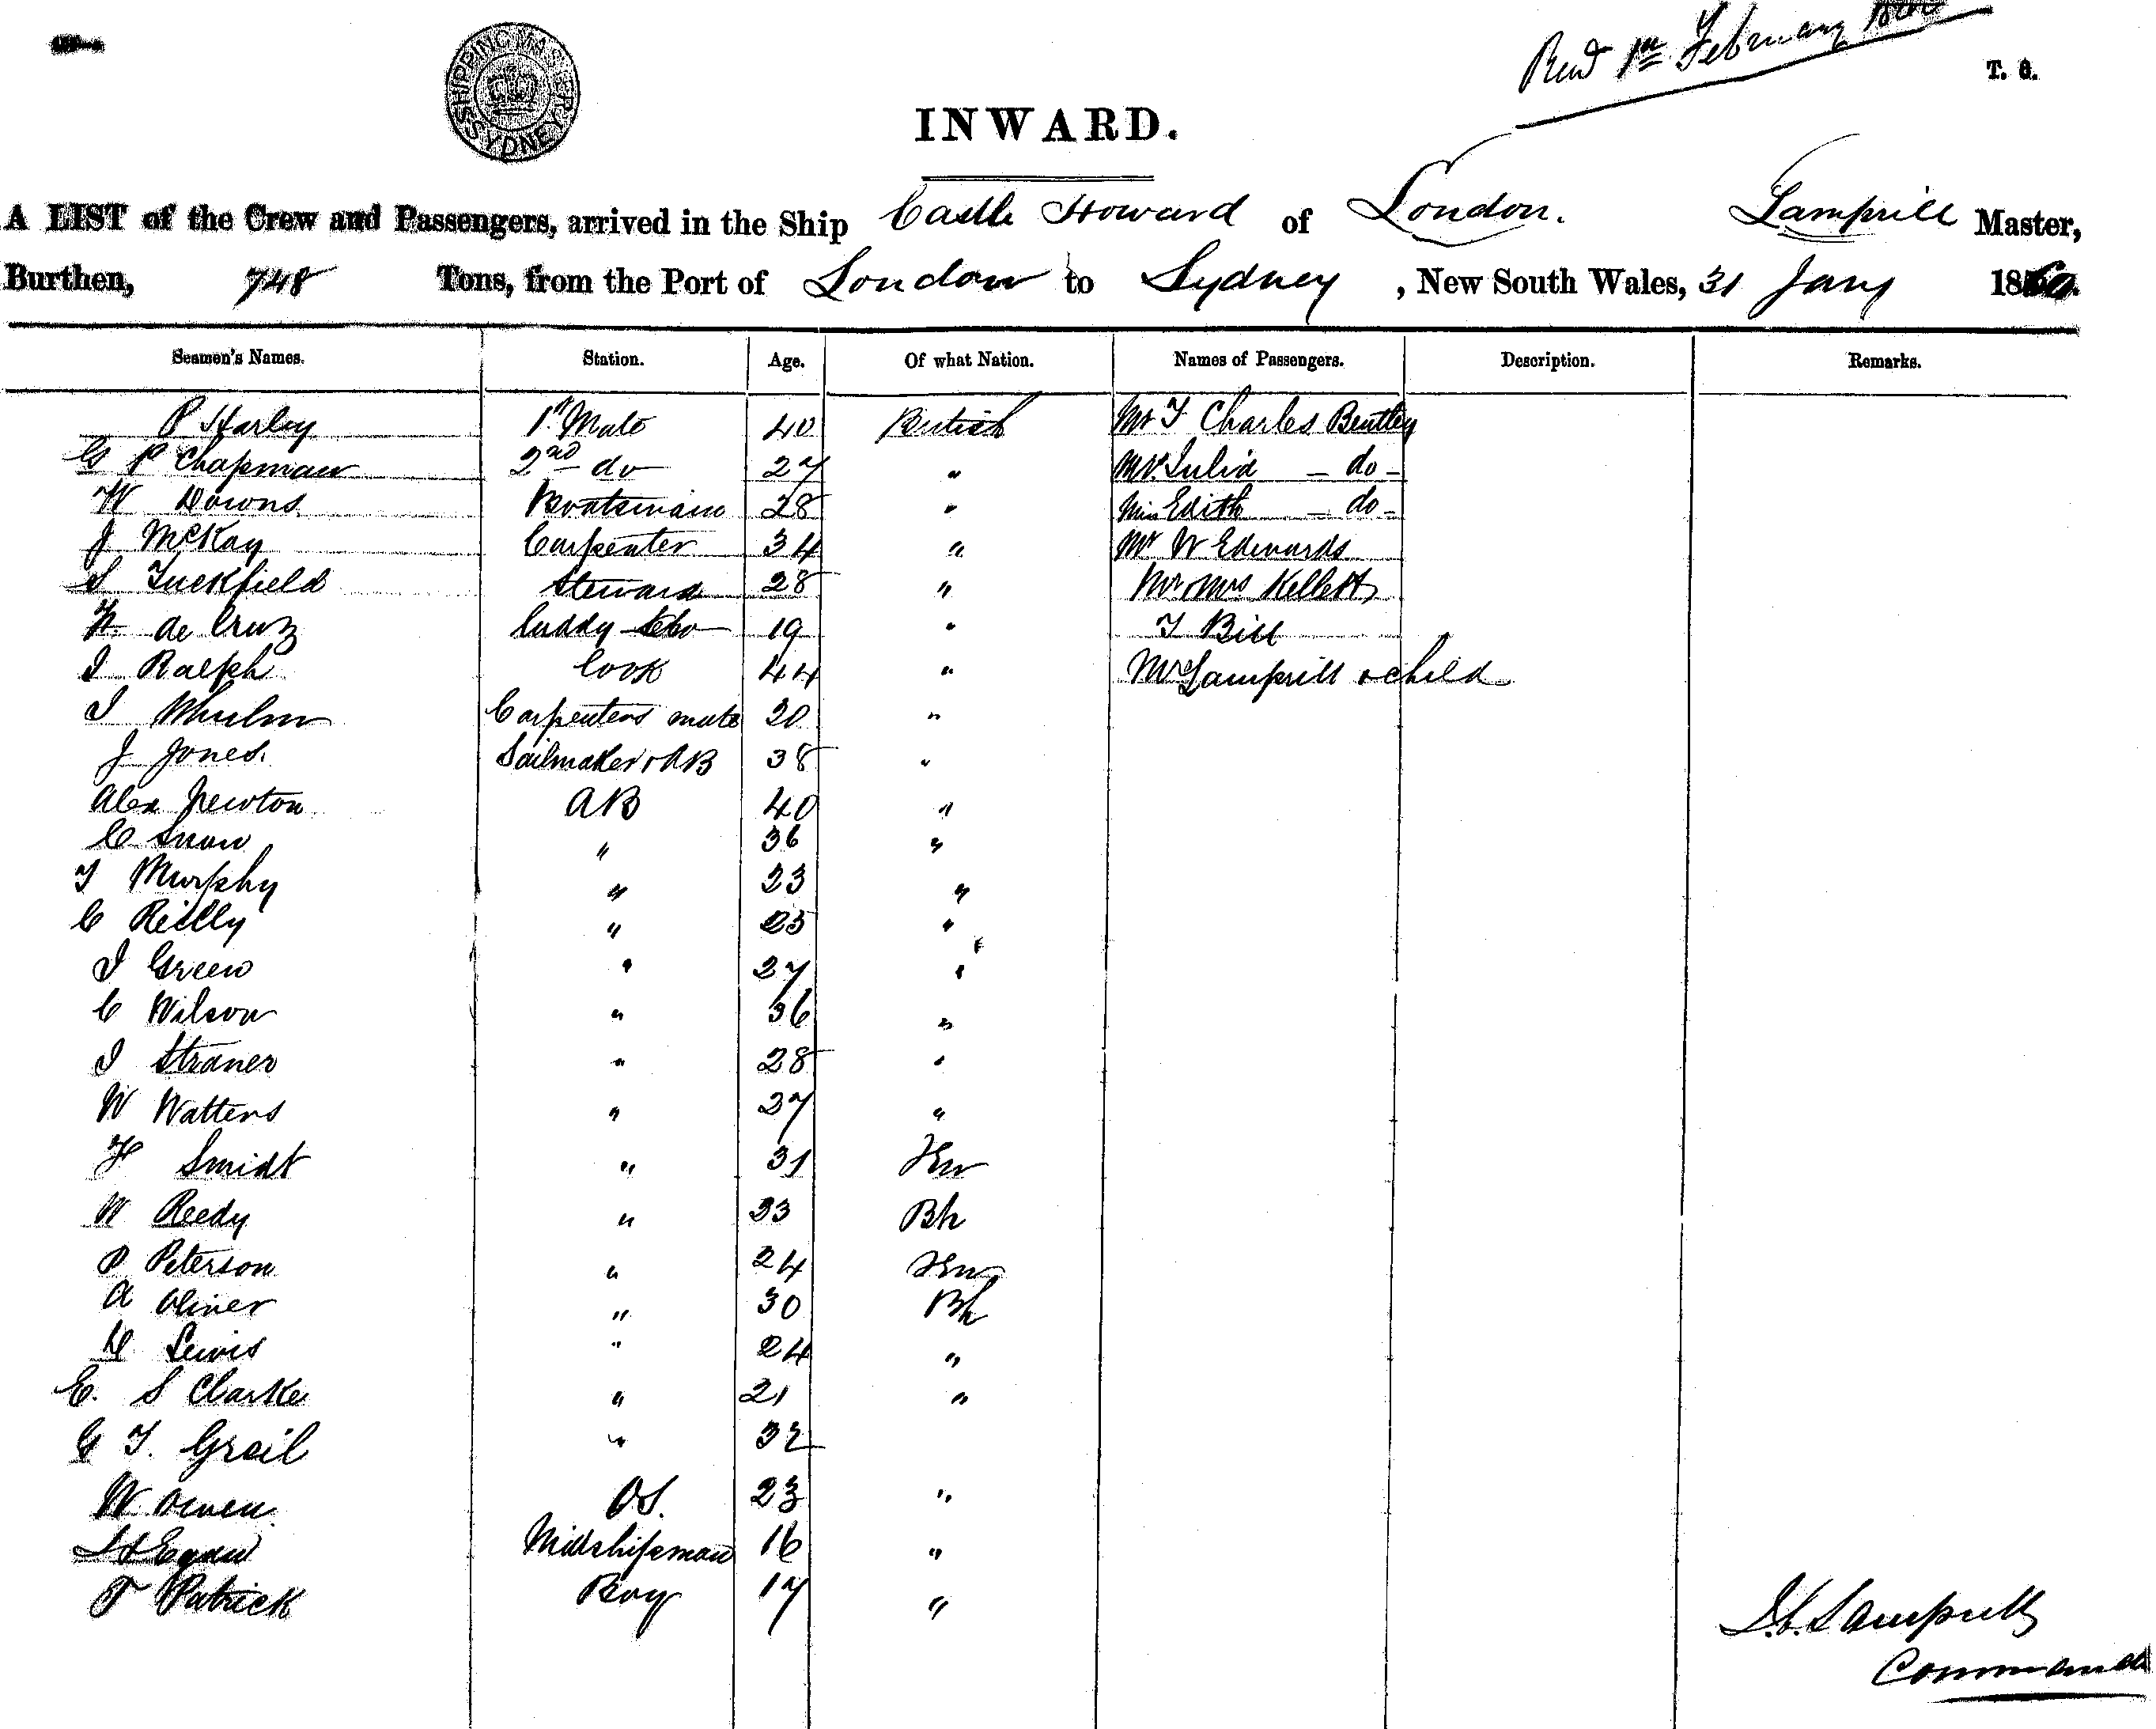 SHIPPING MASTER SYDNEY
1st February
T. G.
INWARD.
A LIST of the Crew and Passengers, arrived in the Ship Castle Howard of London. Lamprill Master,
Burthen, 748 Tons, from the Port of London to Sydney, New South Wales, 31 Jany 1860.
Seamen's Names. Station. Age. Of what Nation. Names of Passengers. Description. Remarks.
P Harley 1st Mate 40 British Mr T Charles Bentley
G P Chapman 2nd do 27 " Mrs Julia - do -
W Downs 28 " Miss Edith - do -
J McKay Carpenter 34 " Mr W Edwards
S Tuckfield Steward 28 " Mr Mrs Kellett
de Cruz Cuddy 19 " T Bill
J Ralph Cook 44 " Mrs Lamprill & child
J Carpenters mate 20 "
J Jones. Sailmaker & AB 38 "
Alex Newton AB 40 "
C Snow " 36 "
T Murphy " 23 "
C Reilly " 25 "
J Green " 27 "
C Wilson " 36 "
J " 28 "
W Watters " 27 "
H Smidt " 31
W Reedy " 23 Bh
P Peterson " 24
A Oliver " 30 Bh
D Lewis " 24 "
E. S Clarke " 21 "
G T. Grail " 32
W Owen OS. 23 "
Midshipman 16 "
T Patrick Boy 17 "
Lamprill